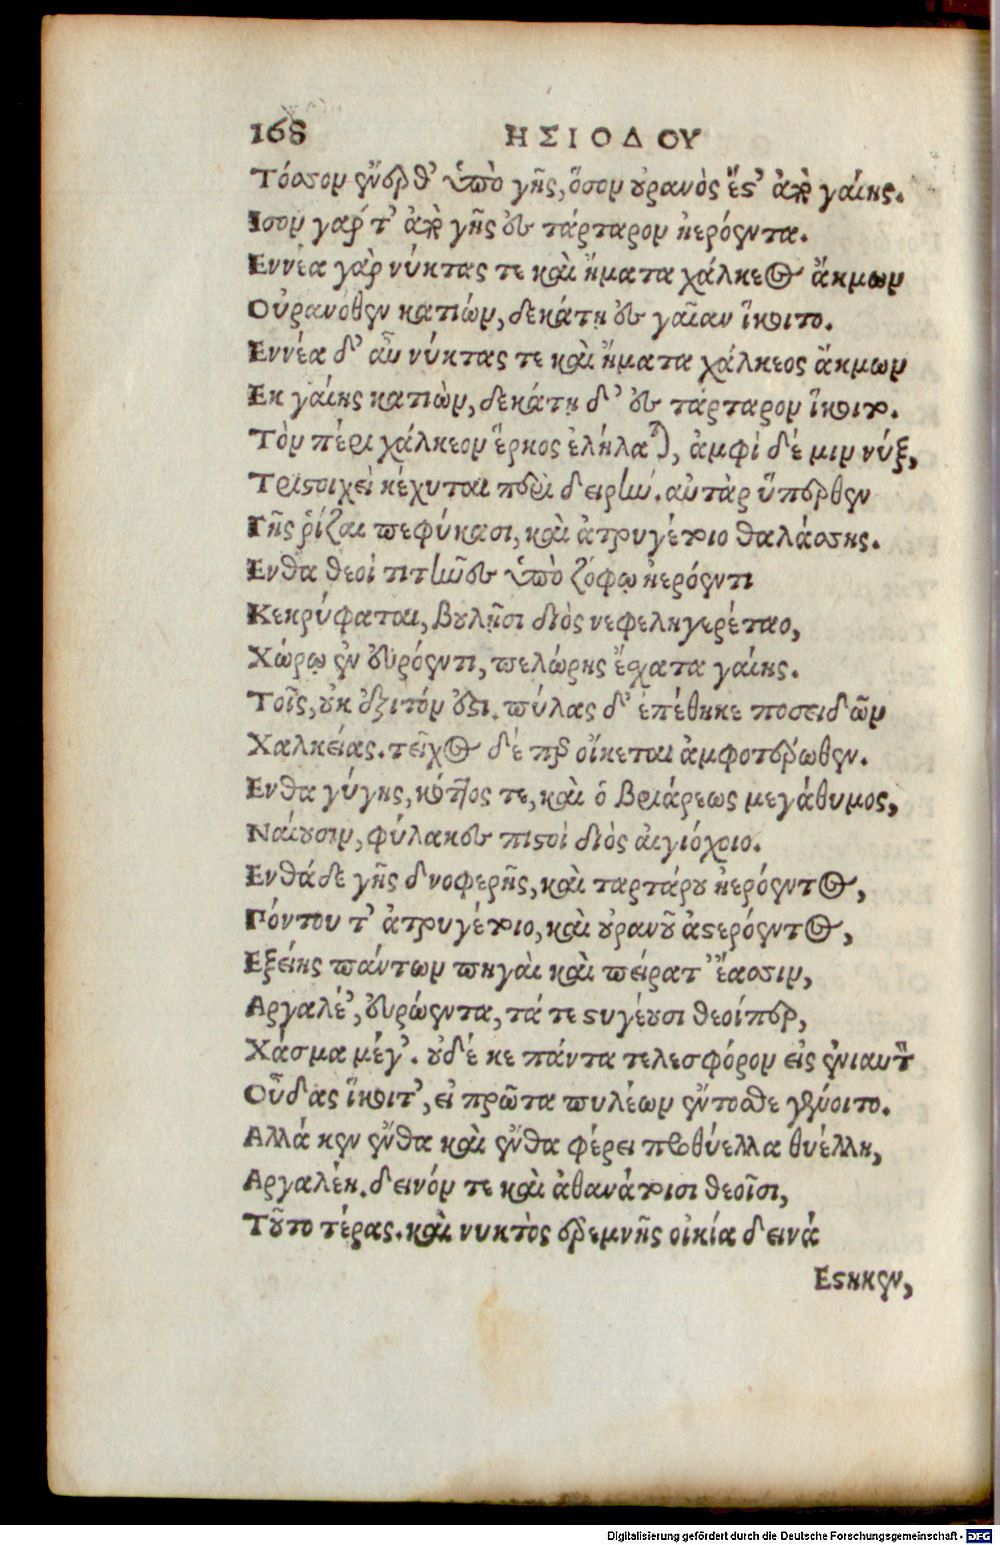 168 ΗΣΙΟΔΟΥ
Τόσσον ἔνερθ' ὑπὸ γῆς, ὅσον οὐρανὸς ἔστ' ἀπὸ γαίης.
Ισον γάρ τ' ἀπὸ γῆς ἐς τάρταρον ἠερόεντα.
Εννέα γὰρ νύκτας τε καὶ ἤματα χάλκεος ἄκμων
Οὐρανόθεν κατιών, δεκάτῃ ἐς γαῖαν ἵκοιτο.
Εννέα δ' αὖ νύκτας τε καὶ ἤματα χάλκεος ἄκμων
Εκ γαίης κατιὼν, δεκάτῃ δ' ἐς τάρταρον ἵκοιτο.
Τὸν πέρι χάλκεον ἕρκος ἐλήλαται, ἀμφὶ δέ μιν νύξ,
Τριστοιχεὶ κέχυται περὶ δειρήν. αὐτὰρ ὕπερθεν
Γῆς ῥίζαι πεφύκασι, καὶ ἀτρυγέτοιο θαλάσσης.
Ενθα θεοὶ τιτῆνες ὑπὸ ζόφῳ ἠερόεντι
Κεκρύφαται, βουλῇσι διὸς νεφεληγερέταο,
Χώρῳ ἐν εὐρόεντι, πελώρης ἔσχατα γαίης.
Τοῖς, οὐκ ἐξιτόν ἐστι. πύλας δ' ἐπέθηκε ποσειδῶν
Χαλκείας. τεῖχος δὲ περ οἴκεται ἀμφοτέρωθεν.
Ενθα γύγης, κόττος τε, καὶ ὁ βριάρεως μεγάθυμος,
Ναίουσιν, φύλακες πιστοὶ διὸς αἰγιόχοιο.
Ενθάδε γῆς δνοφερῆς, καὶ ταρτάρου ἠερόεντος,
Πόντου τ' ἀτρυγέτοιο, καὶ οὐρανοῦ ἀστερόεντος,
Εξείης πάντων πηγαὶ καὶ πείρατ' ἔασσιν,
Αργαλέ', εὐρώεντα, τά τε στυγέουσι θεοίπερ,
Χάσμα μέγ'. οὐδέ κε πάντα τελεσφόρον εἰς ἐνιαυτὸν
Οὖδας ἵκοιτ', εἰ πρῶτα πυλέων ἔντοσθε γένοιτο.
Αλλά κεν ἔνθα καὶ ἔνθα φέρει προθύελλα θυέλλη,
Αργαλέη. δεινόν τε καὶ ἀθανάτοισι θεοῖσι,
Τοῦτο τέρας. καὶ νυκτὸς ἐρεμνῆς οἰκία δεινὰ
Εστηκεν,
Digitalisierung gefördert durch die Deutsche Forschungsgemeinschaft - DFG